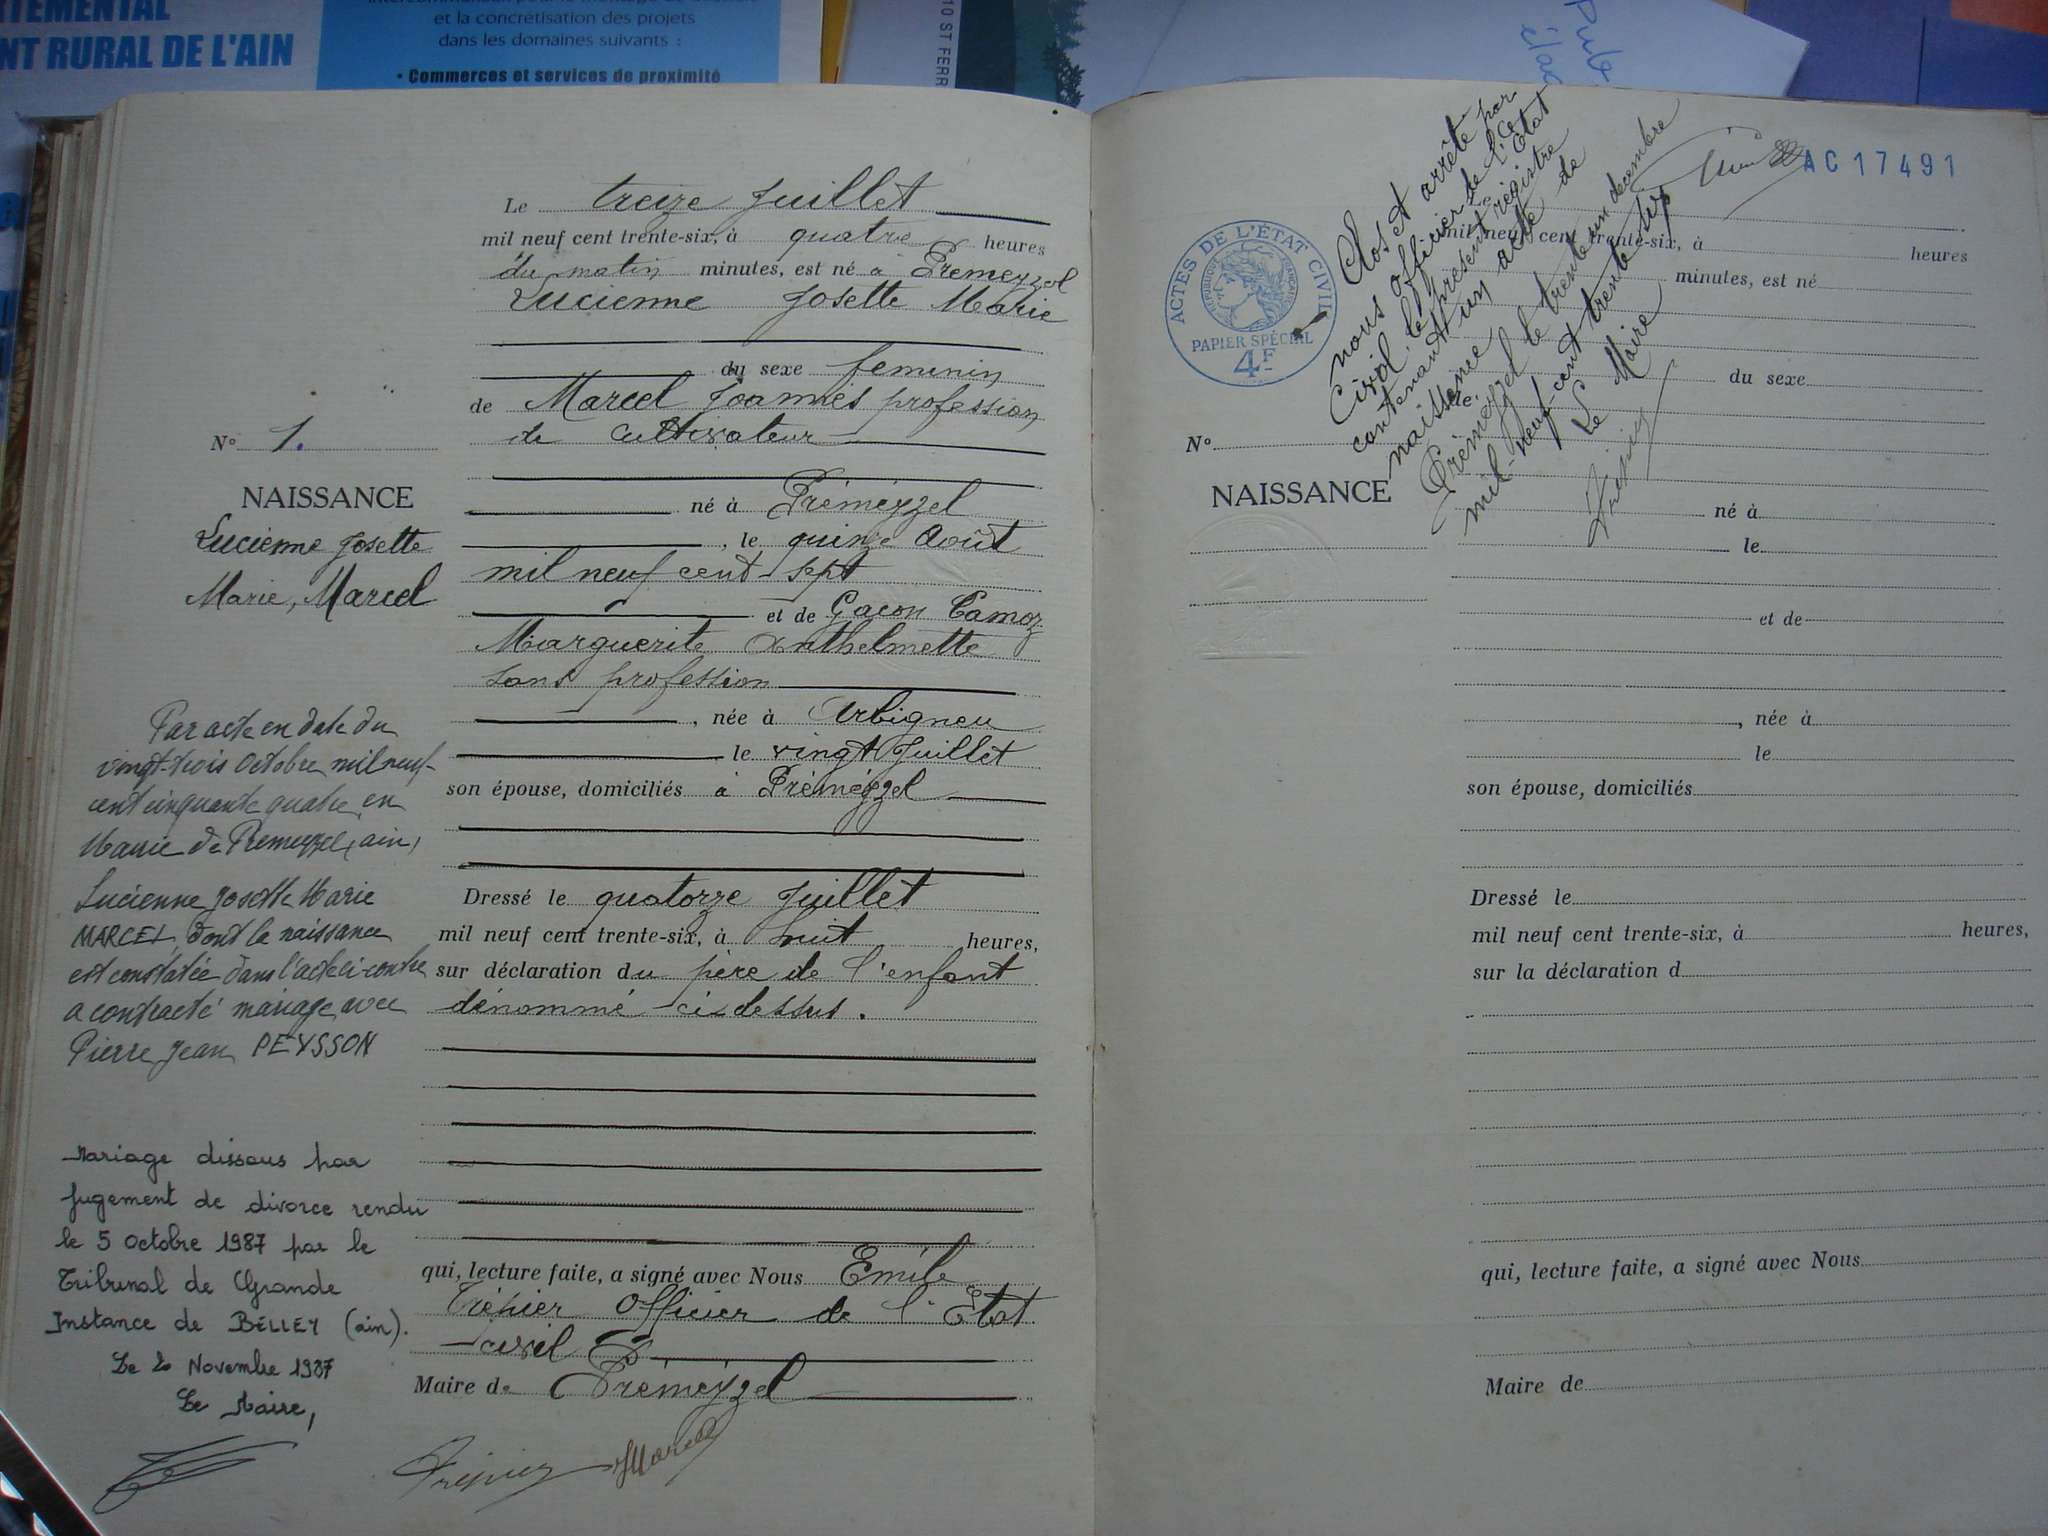 TEMENTAL
NT RURAL DE L'AIN
et la concrétisation des projets
dans les domaines suivants :
• Commerces et services de proximité
10 ST FERR
Le treize Juillet
mil neuf cent trente-six, à quatre heures
du matin minutes, est né à Prémeyzel
Lucienne Josette Marie
du sexe féminin
de Marcel Joannès profession
de cultivateur
N° 1.
NAISSANCE
Lucienne Josette
Marie, Marcel
né à Préméyzel
, le quinze Août
mil neuf cent sept
et de Gacon Camoz
Marguerite Anthelmette
sans profession
, née à Arbigneu
le vingt Juillet
son épouse, domiciliés à Préméyzel
Dressé le quatorze Juillet
mil neuf cent trente-six, à huit heures,
sur déclaration du père de l'enfant
dénommé ci-dessus.
qui, lecture faite, a signé avec Nous Emile
Trépier Officier de l'Etat
civil
Maire de Préméyzel
Trépier Marcel
Par acte en date du
vingt-trois Octobre mil neuf-
cent cinquante quatre, en
Mairie de Prémeyzel (ain)
Lucienne Josette Marie
MARCEL, dont la naissance
est constatée dans l'acte ci-contre
a contracté mariage avec
Pierre Jean PEYSSON
Mariage dissous par
jugement de divorce rendu
le 5 Octobre 1987 par le
Tribunal de Grande
Instance de BELLEY (ain).
Le 20 Novembre 1987
Le Maire,
AC 17491
ACTES DE L'ÉTAT CIVIL
RÉPUBLIQUE FRANÇAISE
PAPIER SPÉCIAL
4F
Clos et arrêté par
nous officier de l'Etat
Civil, le présent régistre
contenant un acte de
naissance
Prémeyzel le trente un decembre
mil-neuf-cent trente six
Le Maire
Trépier
Le
mil neuf cent trente-six, à heures
minutes, est né
du sexe
de
N°
NAISSANCE
né à
le
et de
, née à
le
son épouse, domiciliés
Dressé le
mil neuf cent trente-six, à heures,
sur la déclaration d
qui, lecture faite, a signé avec Nous
Maire de